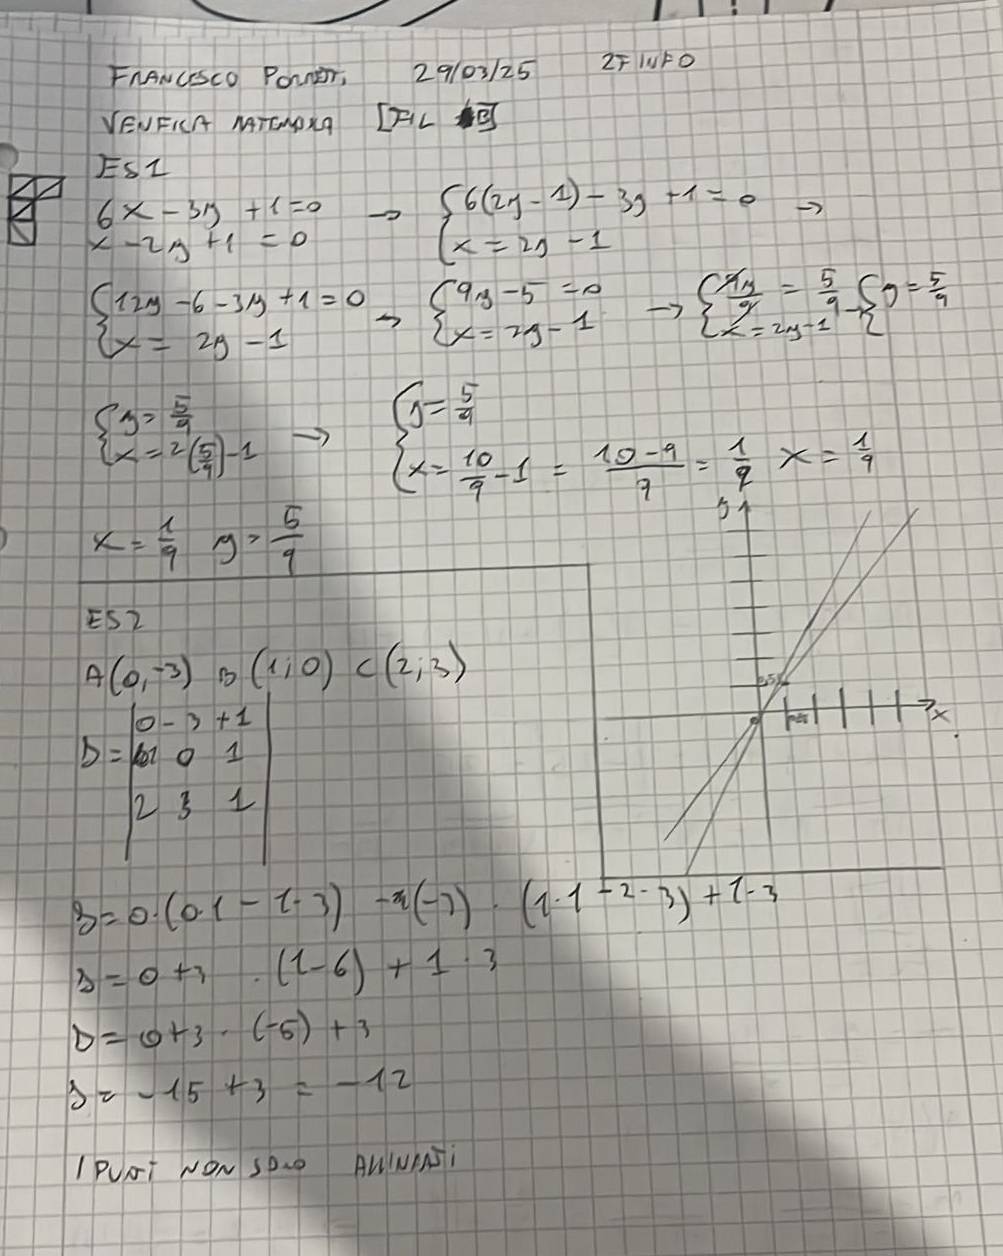 FRANCESCO 29/03/25 2F INFO
VERIFICA MATEMATICA
ES1
6x - 3y + 1 = 0 → { 6(2y - 1) - 3y + 1 = 0 →
x - 2y + 1 = 0 { x = 2y - 1
{ 12y - 6 - 3y + 1 = 0 → { 9y - 5 = 0 → { 9y/9 = 5/9 → { y = 5/9
{ x = 2y - 1 { x = 2y - 1 { x = 2y - 1 {
{ y = 5/9 → { y = 5/9
{ x = 2(5/9) - 1 { x = 10/9 - 1 = 10-9/9 = 1/9 x = 1/9
y
x = 1/9 y = 5/9
ES2
A(0,-3) B(1;0) C(2;3)
x
0 -3 +1
D = 1 0 1
2 3 1
D = 0·(0·1 - 1·3) - (-3) · (1·1 - 2·3) + 1·3
D = 0 + 3 · (1-6) + 1·3
D = 0 + 3 · (-5) + 3
D = -15 + 3 = -12
I PUNTI NON SONO ALLINEATI